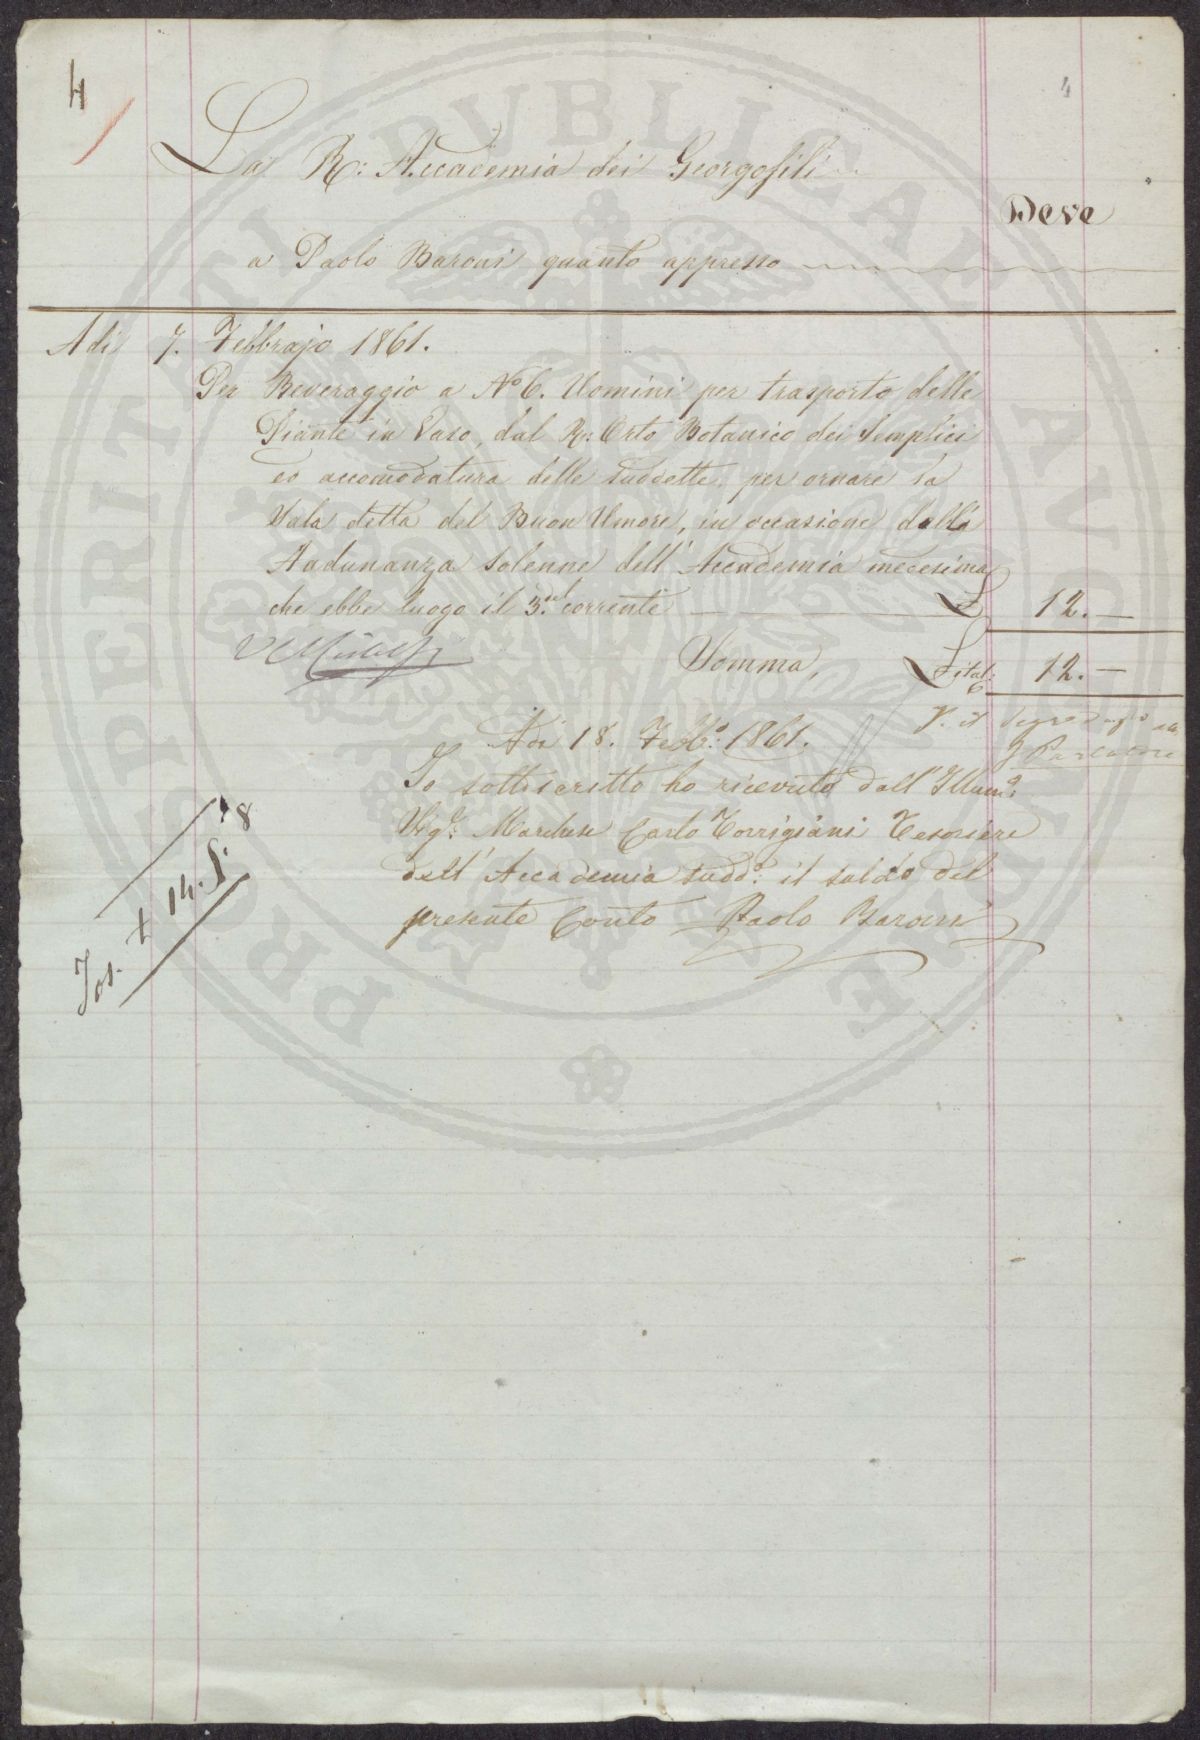 4
4
La R: Accademia dei Georgofili
Deve
a Paolo Baroni quanto appresso
Adi 7. Febbrajo 1861.
Per Beveraggio a No 6. Uomini per trasporto delle
Piante in Vaso, dal R: Orto Botanico dei Semplici
ed accomodatura delle suddette per ornare la
Sala detta del Buon Umore, in occasione della
Aadunanza Solenne dell' Accademia medesima
che ebbe luogo il 3. corrente £ 12.—
Somma, £ ital: 12.—
V. il
Adi 18. Febb:o 1861.
Io sottoscritto ho ricevuto dall' Illmo:
Sig:r Marchese Carlo Torrigiani Tesoriere
dell' Accademia sudd:a il saldo del
presente Conto Paolo Baroni
Tos. £ 14. 5. 8
PROSPERITATI PVBLICAE AVGENDAE